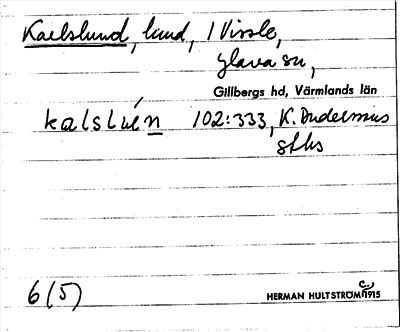 Karlslund, lund, 1 Vissle,
Glava sn,
Gillbergs hd, Värmlands län
kalslún 102:333, K.
6(5) HERMAN HULTSTRÖM 1915